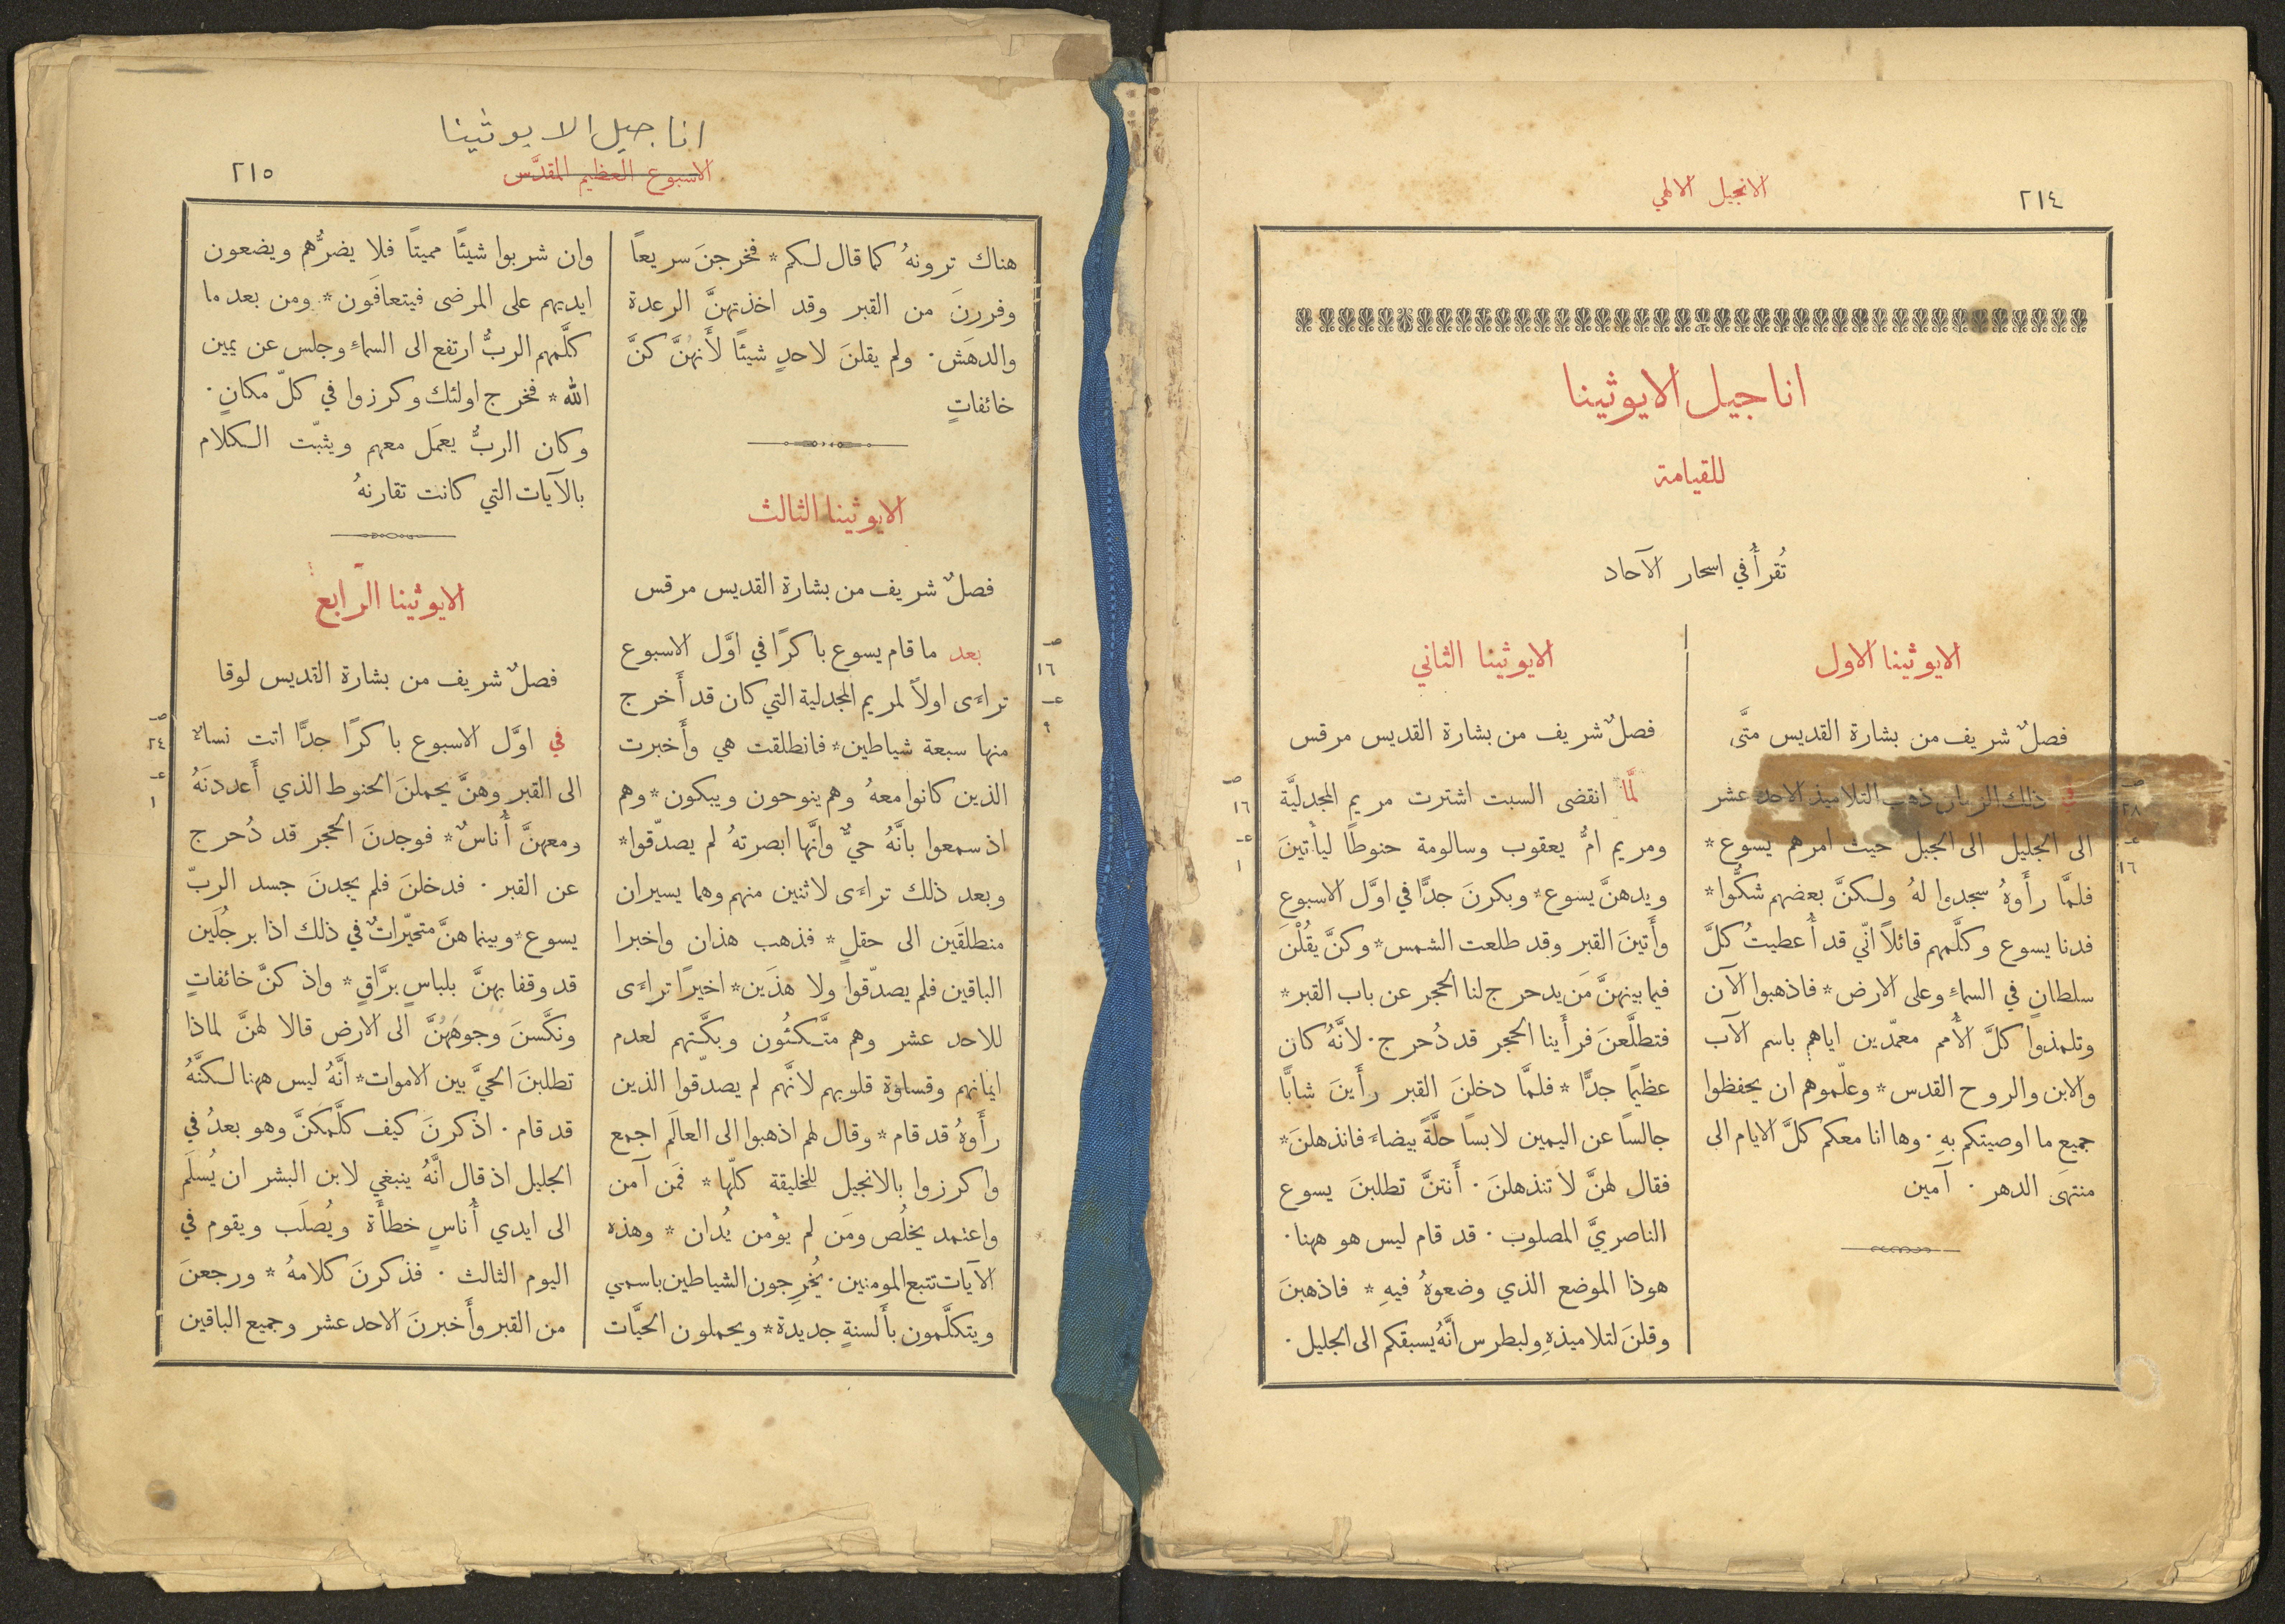 ٢١٤
الانجيل الالهي
اناجيل الايوثينا
للقيامة
تُقرأُ في اسحار الآحاد
الايوثينا الاول
فصلٌ شريف من بشارة القديس متَّى
صـ
٢٨
عـ
١٦
في ذلك الزمان ذهب التلاميذ الاحد عشر
الى الجليل الى الجبل حيث امرهم يسوع *
فلمَّا رأَوهُ سجدوا لهُ ولكنَّ بعضهم شكُّوا *
فدنا يسوع وكلَّمهم قائلاً انّي قد أُعطيتُ كلَّ
سلطانٍ في السماءِ وعلى الارض * فاذهبوا الآن
وتلمذوا كلَّ الأُمم معمّدين اياهم باسم الآب
والابن والروح القدس * وعلّموهم ان يحفظوا
جميع ما اوصيتكم بهِ . وها انا معكم كلَّ الايام الى
منتهَى الدهر . آمين
الايوثينا الثاني
فصلٌ شريف من بشارة القديس مرقس
صـ
١٦
عـ
١
لمَّا انقضى السبت اشترت مريم المجدليَّة
ومريم امُّ يعقوب وسالومة حنوطًا ليأتينَ
ويدهنَّ يسوع * وبكرنَ جدًّا في اوَّل الاسبوع
وأَتينَ القبر وقد طلعت الشمس * وكنَّ يقُلْنَ
فيما بينهنَّ مَن يدحرج لنا الحجر عن باب القبر *
فتطلَّعنَ فرأَينا الحجر قد دُحرج . لانَّهُ كان
عظيمًا جدًّا * فلمَّا دخلنَ القبر رأَينَ شابًّا
جالسًا عن اليمين لابسًا حلَّةً بيضاءَ فانذهلنَ *
فقال لهنَّ لا تنذهلنَ . أَنتنَّ تطلبنَ يسوع
الناصريَّ المصلوب . قد قام ليس هو ههنا .
هوذا الموضع الذي وضعوهُ فيهِ * فاذهبنَ
وقلنَ لتلاميذهِ ولبطرس انَّهُ يسبقكم الى الجليل .
اناجيل الايوثينا
الاسبوع العظيم المقدَّس
٢١٥
هناك ترونهُ كما قال لكم * فخرجنَ سريعًا
وفررنَ من القبر وقد اخذتهنَّ الرعدة
والدهَش . ولم يقلنَ لاحدٍ شيئًا لأَنهنَّ كنَّ
خائفاتٍ
الايوثينا الثالث
فصلٌ شريف من بشارة القديس مرقس
صـ
١٦
عـ
٩
بعد ما قام يسوع باكرًا في اوَّل الاسبوع
تراءَى اولاً لمريم المجدلية التي كان قد أَخرج
منها سبعة شياطين * فانطلقت هي وأَخبرت
الذين كانوا معهُ وهم ينوحون ويبكون * وهم
اذ سمعوا بانَّهُ حيٌّ وانَّها ابصرتهُ لم يصدّقوا *
وبعد ذلك تراءَى لاثنين منهم وهما يسيران
منطلقَين الى حقلٍ * فذهب هذان واخبرا
الباقين فلم يصدّقوا ولا هذَين * اخيرًا تراءَى
للاحد عشر وهم متَّكئُون وبكَّتهم لعدم
ايمانهم وقساوة قلوبهم لانَّهم لم يصدّقوا الذين
رأَوهُ قد قام * وقال لهم اذهبوا الى العالَم اجمع
واكرزوا بالانجيل للخليقة كلّها * فمَن آمن
واعتمد يخلُص ومَن لم يؤمن يُدان * وهذه
الآيات تتبع المومنين . يُخرِجون الشياطين باسمي
ويتكلَّمون بأَلسنةٍ جديدة * ويحملون الحيَّات
وان شربوا شيئًا مميتًا فلا يضرُّهم ويضعون
ايديهم على المرضى فيتعافَون * ومن بعد ما
كلَّمهم الربُّ ارتفع الى السماءِ وجلس عن يمين
الله * فخرج اولئك وكرزوا في كلّ مكانٍ .
وكان الربُّ يعمَل معهم ويثبّت الكلام
بالآيات التي كانت تقارنهُ
الايوثينا الرابع
فصلٌ شريف من بشارة القديس لوقا
صـ
٢٤
عـ
١
في اوَّل الاسبوع باكرًا جدًّا اتت نساءٌ
الى القبر وهنَّ يحملنَ الحنوط الذي أَعددنَهُ
ومعهنَّ أُناسٌ * فوجدنَ الحجر قد دُحرج
عن القبر . فدخلنَ فلم يجدنَ جسد الربّ
يسوع * وبينما هنَّ متحيّراتٌ في ذلك اذا برجُلَين
قد وقفا بهنَّ بلباسٍ برَّاقٍ * واذ كنَّ خائفاتٍ
ونكَّسنَ وجوههُنَّ الى الارض قالا لهنَّ لماذا
تطلبنَ الحيَّ بين الاموات * انَّهُ ليس ههنا لكنَّهُ
قد قام . اذكرنَ كيف كلَّمكنَّ وهو بعدُ في
الجليل اذ قال انَّهُ ينبغي لابن البشر ان يُسلَم
الى ايدي أُناسٍ خطأَة ويُصلَب ويقوم في
اليوم الثالث . فذكرنَ كلامهُ * ورجعنَ
من القبر وأَخبرنَ الاحد عشر وجميع الباقين